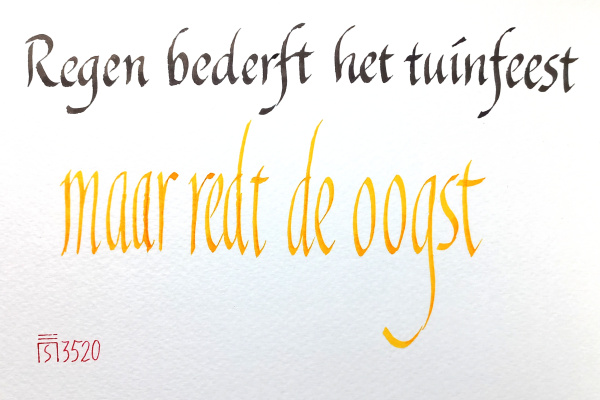 Regen bederft het tuinfeest
maar redt de oogst
S 3520